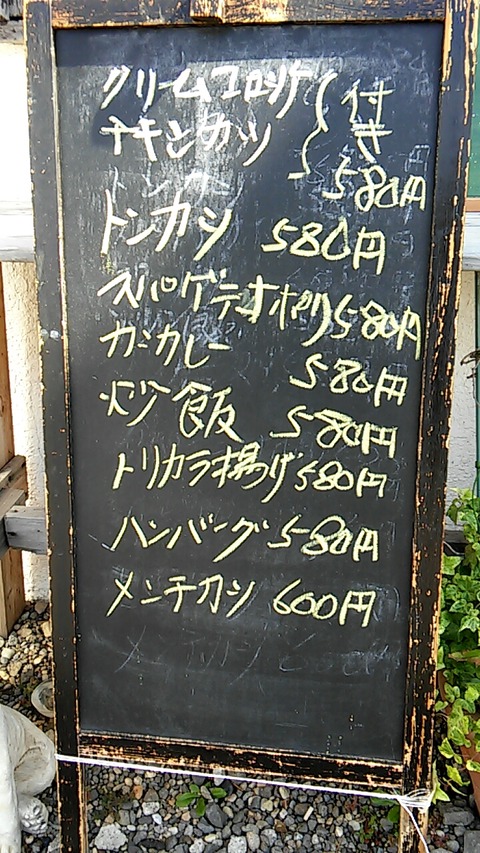 クリームコロッケ
チキンカツ
付き
580円
トンカツ 580円
スパゲテナポリ 580円
カツカレー 580円
炒飯 580円
トリカラ揚げ 580円
ハンバーグ 580円
メンチカツ 600円